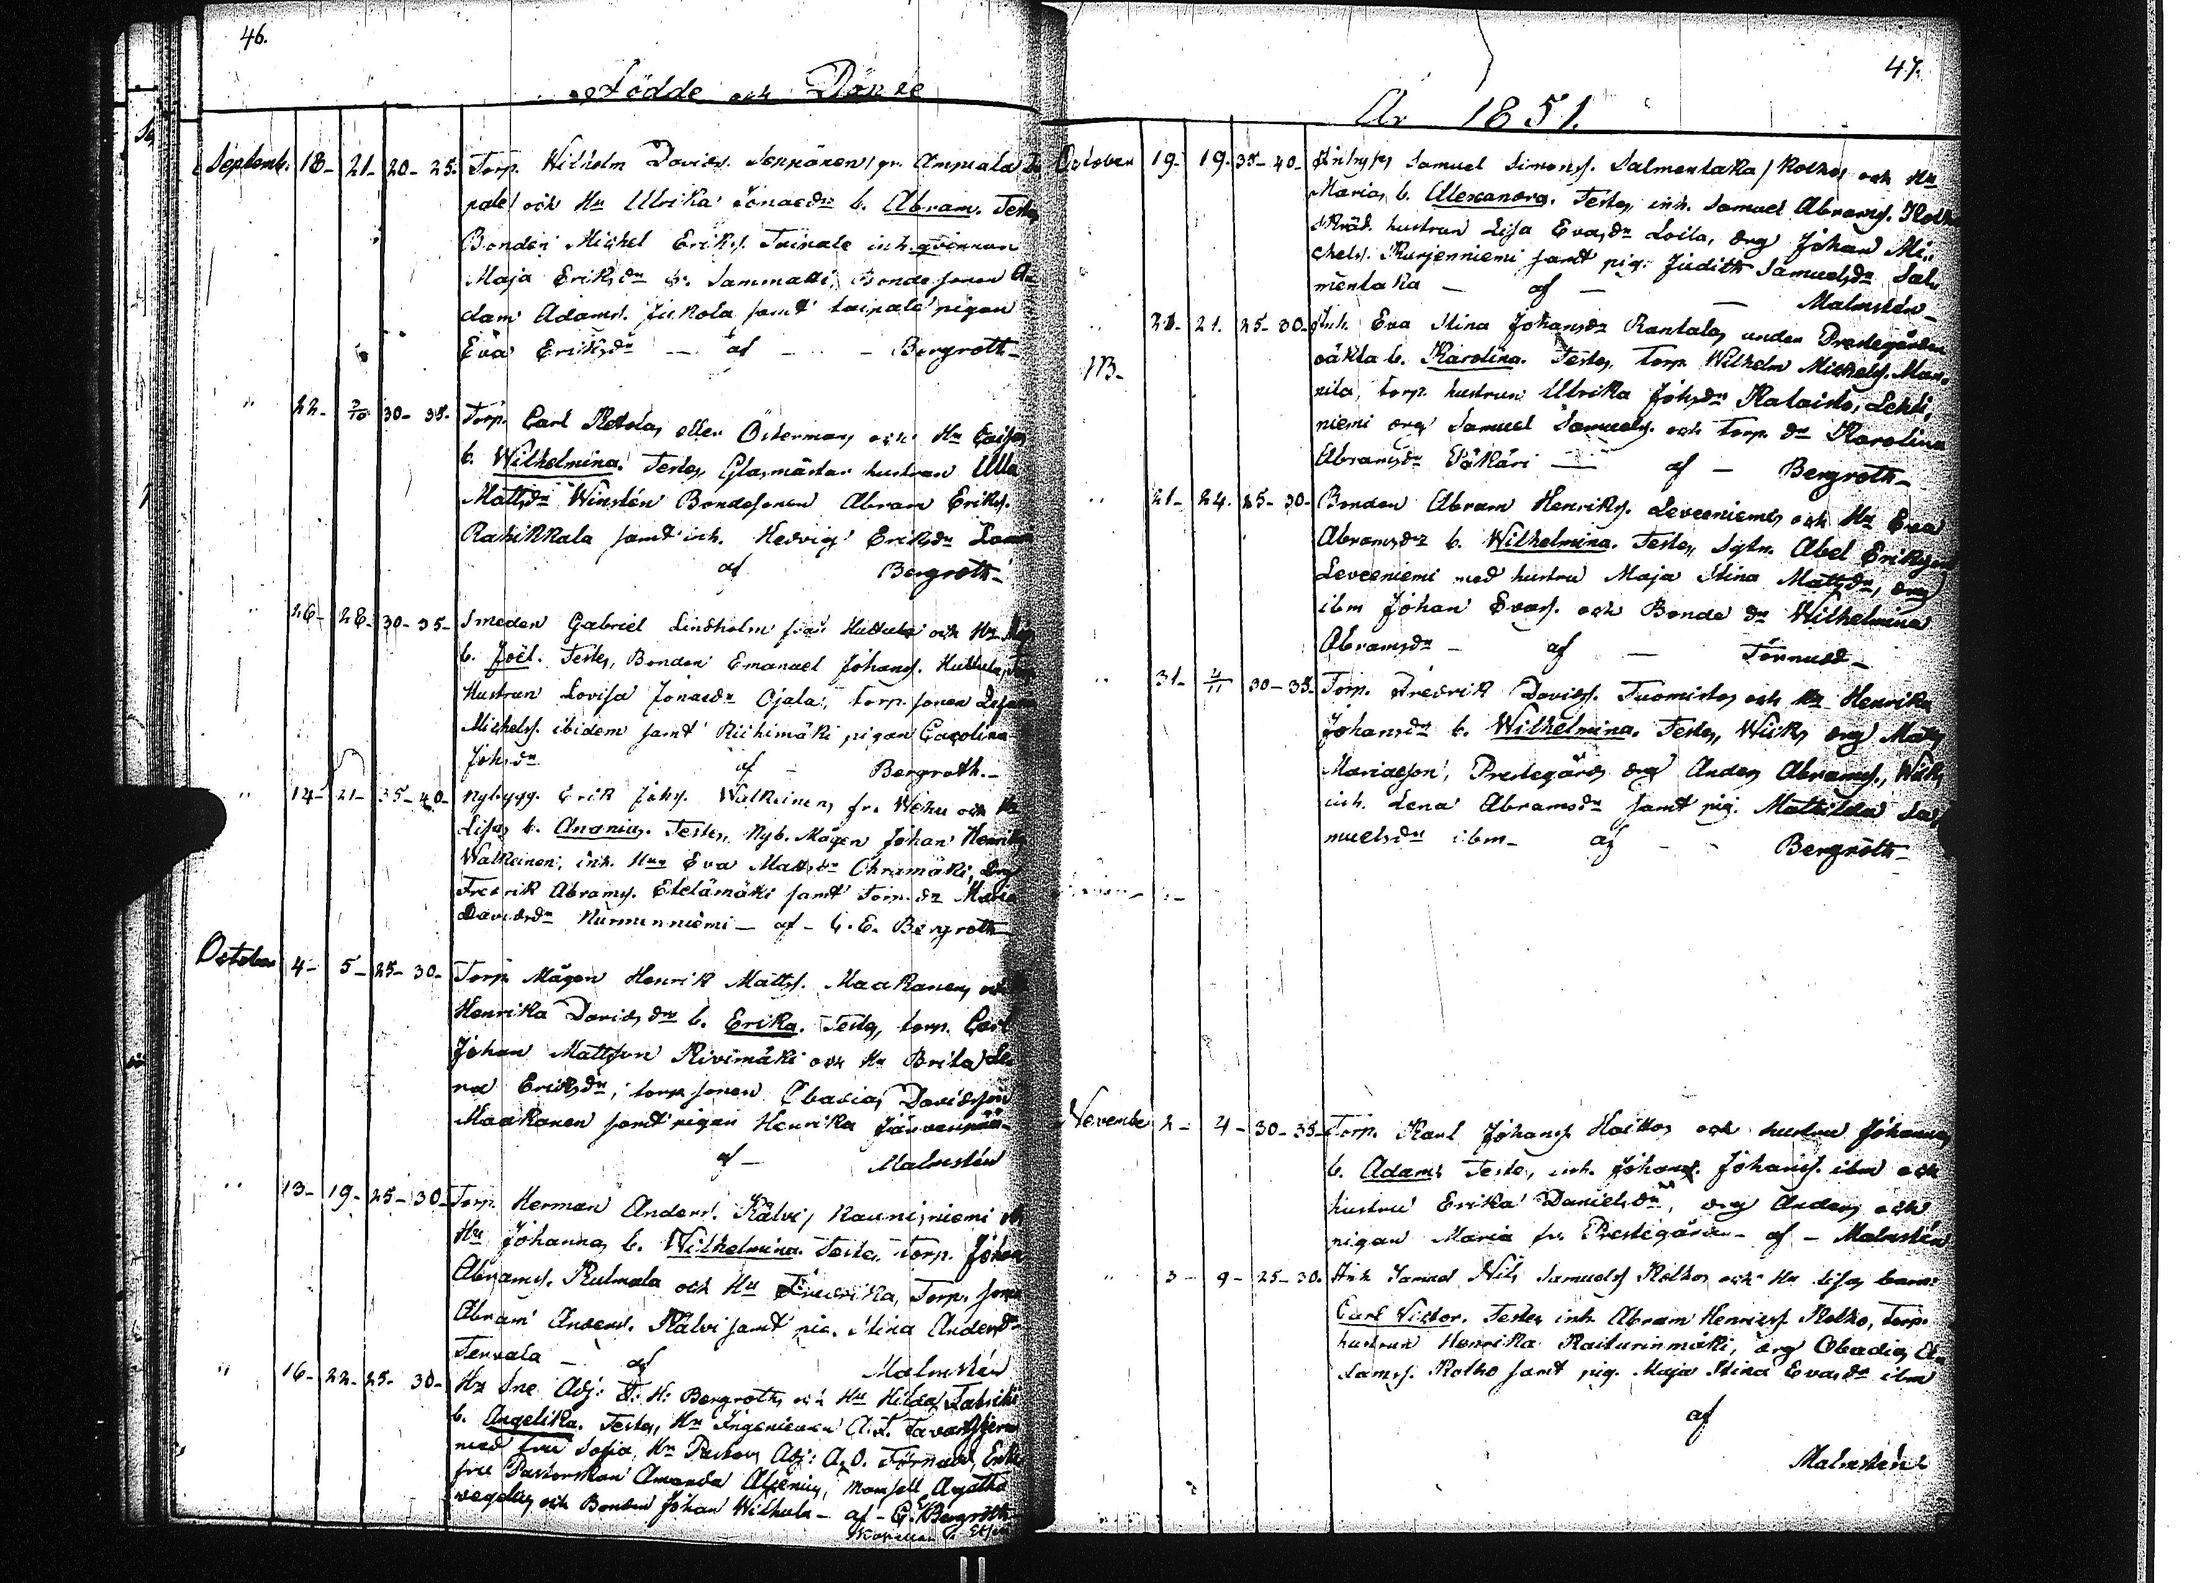 46.
Födde och Döpte
Septemb. 18- 21- 20-25. Torp. Wilhelm Davids. Seppänen, fr. Ampiala
pale och Hu Ulrika Jonasdr b. Abram. Testes,
Bonden Michel Eriks. Taipale inh. qvinnan
Maja Eriksdr fr. Sammatti, Bonde sonen A
dam Adams. Jickola samt taipale pigan
Eva Eriksdr — af — Bergroth-
" 22- 2/10 30-35. Torp. Carl Ketola, eller Österman, och Hu Caisa,
b. Wilhelmina. Testes, Glasmästar hustrun Ulla
Mattsdr Winstén Bondesonen Abram Eriks.
Rahikkala samt inh. Hedvig Eriksdr
af Bergroth-
" 26- 28- 30-35- Smeden Gabriel Lindholm från Huttula och Hu
b. Joël. Testes, Bonden Emanuel Johans. Huttula,
Hustrun Lovisa Jonasdr Ojala, torp. sonen
Michels. ibidem samt Riihimäki pigan Carolina
Johsdr af - Bergroth.-
" 14- 21- 35-40- Nybygg. Erik Johs. Walkeinen, fr. Wehu och Hu
Lisa, b. Ananias. Testes, Nyb. Mågen Johan Henriks.
Walkeinen, inh. Hu Eva Mattsdr Ohramäki, Drg
Fredrik Abrams. Etelämäki samt Torp. dr Maria
Davidsdr Nurminniemi — af - G. E. Bergroth
October 4- 5- 25-30- Torp. Mågen Henrik Matts. Maakanen, och
Henrika Davidsdr b. Erika. Testes, torp. Carl
Johan Mattsson Kivimäki och Hu Brita Le
na Eriksdr, torp. sonen Obadias Davidsson
Maakanen samt pigan Henrika Järvenpää-
af - Malmstén
" 13- 19- 25-30- Torp. Herman Anders. Kälvi, Kaunisniemi och
Hu Johanna, b. Wilhelmina. Testes, torp. Johan
Abrams. Kulmala och Hu Fredrika, Torp. sonen
Abram Anders. Kälvi samt pig. Stina Andersdr
Tervala — af Malmstén
" 16- 22- 25-30- Hr Sne Adj: F. H: Bergroth, och Hu Hilda
b. Angelika. Testes, Hr Ingenieuren A. F. Tavaststjerna
med fru Sofia, Hr Pastors Adj: A. O. Törnudd, Enke
fru Pastorskan Amanda Alcenius, Mamsell Agatha
och Bonden Johan Wilhula - af - G. E. Bergroth
47.
År 1851.
October 19- 19- 35-40- Inhys, Samuel Simons. Salmentaka / Kotko, och Hu
Maria, b. Alexandra. Testes, inh. Samuel Abrams. Kotko
skräd. hustrun Lisa Evasdr Loila, drg Johan Mi-
chels. Kurjenniemi samt pig. Judith Samuelsdr Sal-
mentaka — af — Malmstén-
" 21- 21. 25-30- Inh. Eva Stina Johansdr Rantala, under Prestegården
oäkta b. Karolina. Testes, Torp. Wilhelm Michels. Man-
nila, torp. hustrun Ulrika Johsdr Kataisto, Lehti-
niemi drg Samuel Samuels. och Torp. dr Karolina
Abramsdr Päkäri — af — Bergroth-
" 21- 24. 25-30- Bonden Abram Henriks. Leveeniemi, och Hu Eva
Abramsdr b. Wilhelmina. Testes, Sytn. Abel Eriksson
Leveeniemi med hustru Maja Stina Mattsdr, drg
ibm Johan Evas. och Bonde dr Wilhelmina
Abramsdr - af — Törnudd-
" 31- 2/11 30-35. Torp. Fredrik Davids. Tuomisto, och Hu Henrika
Johansdr b. Wilhelmina. Testes, Wiiks drg Matts
Mariaeson, Prestegårds drg Anders Abrams., Wiiks
inh. Lena Abramsdr samt pig. Mathilda Sa-
muelsdr ibm- af - - Bergroth-
November 2- 4- 30-35- Torp. Karl Johans. Haitko, och hustru Johanna,
b. Adam. Testes, inh. Johan Johans. ibm och
hustru Erika Danielsdr, drg Anders och
pigan Maria fr. Prestegården - af - Malmstén
" 3- 9- 25-30. Inh Nils Samuels Kotko, och Hu Lisa, barn:
Carl Victor. Testes, inh. Abram Henriks. Kotko, torp.
hustrun Henrika Raiturinmäki, drg Obadias
Kotko samt pig. Maja Stina Evasdr ibm
af
Malmstén